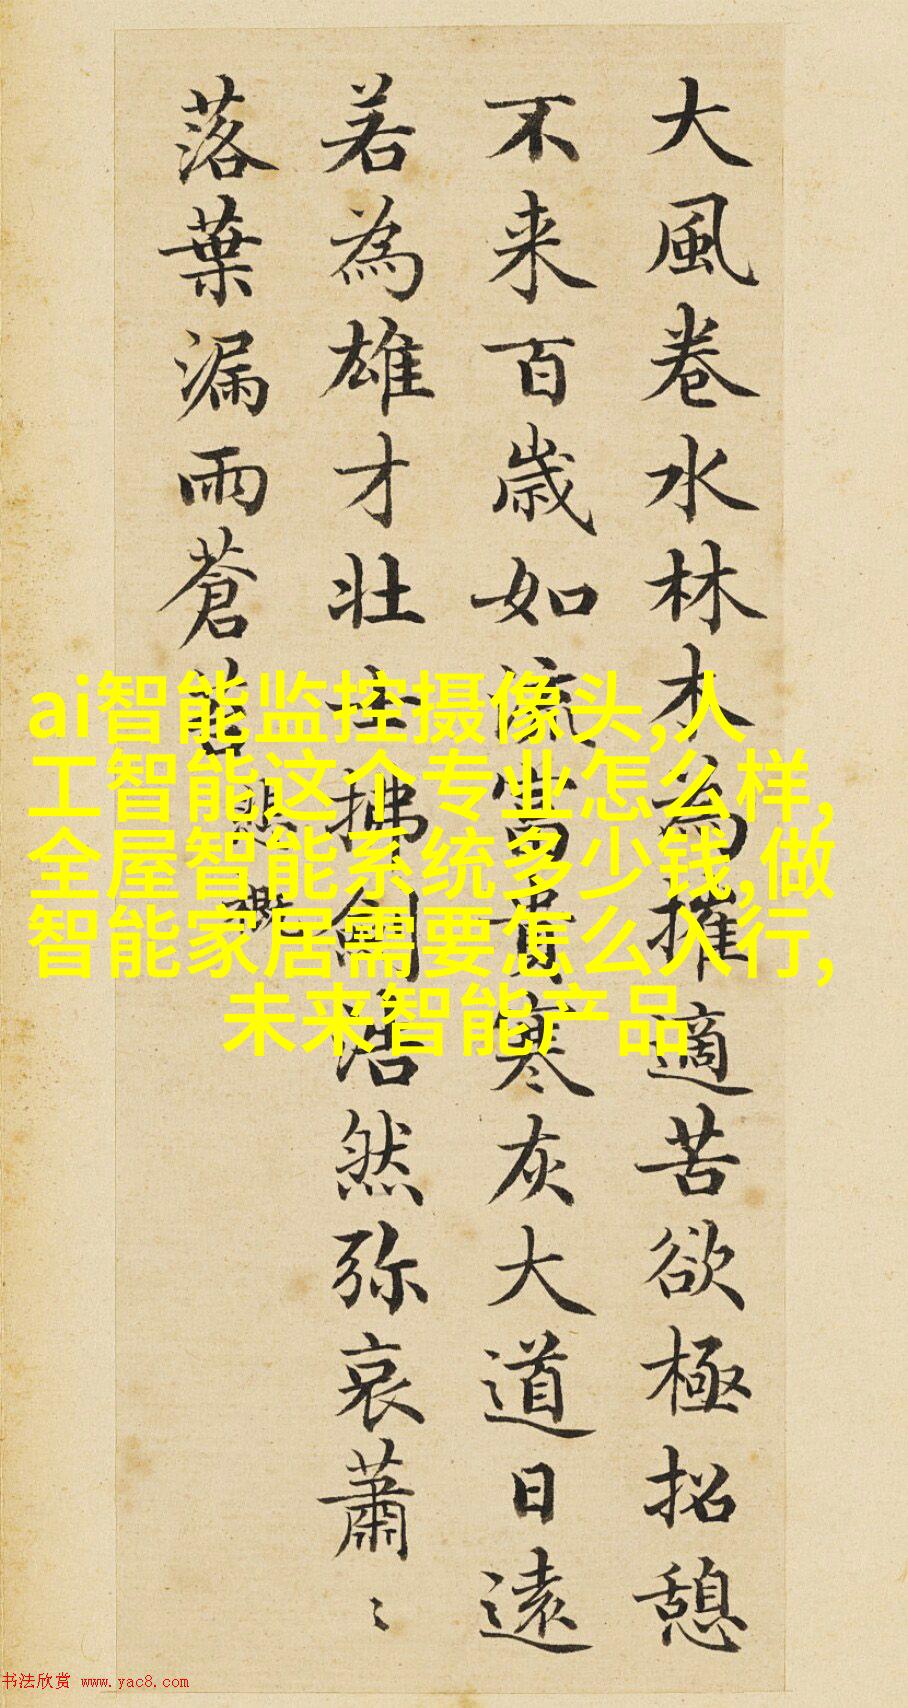 大風卷水林木為摧適苦欲極招憩
不来百歲如流富貴寒灰大道日遠
若為雄才壮士拂劍浩然弥哀蕭〻
落葉漏雨蒼苔
悲慨
ai智能监控摄像头,人
工智能这个专业怎么样,
全屋智能系统多少钱,做
智能家居需要怎么入行,
未来智能产品
书法欣赏 www.yac8.com